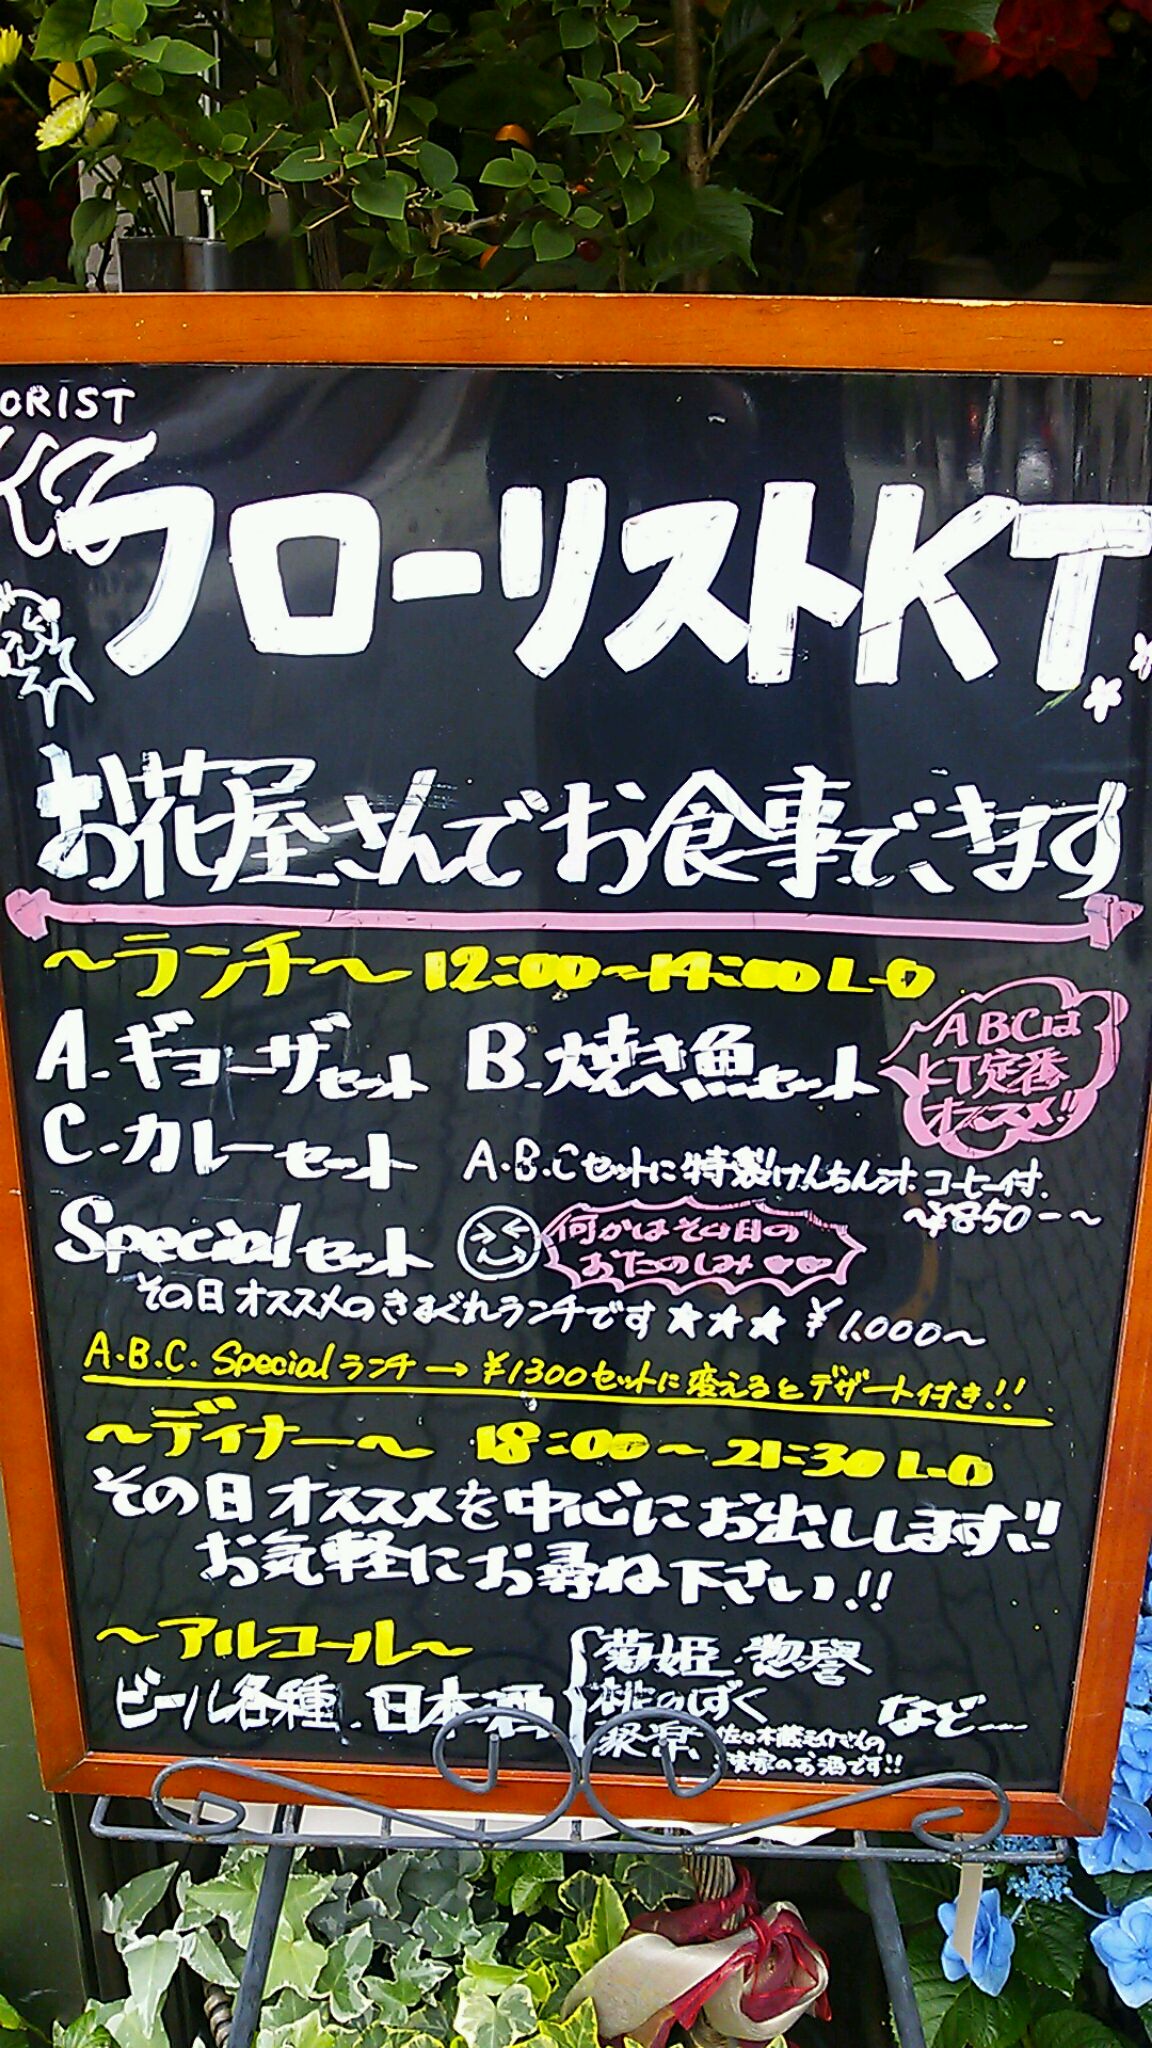 ORIST
フローリストKT
お花屋さんでお食事できます
〜ランチ〜 12:00〜14:00 L-O
A-ギョーザセット B-焼き魚セット
ABCは
KT定番
オススメ!!
C-カレーセット
A.B.Cセットに特製けんちん汁.コーヒー付.
〜¥850-〜
Specialセット
何かはその日の
おたのしみ
その日オススメのきまぐれランチです★★★ ¥1.000〜
A.B.C. Specialランチ→¥1300セットに変えるとデザート付き!!
〜ディナー〜 18:00〜21:30 L-O
その日オススメを中心にお出しします!!
お気軽にお尋ね下さい!!
〜アルコール〜
ビール各種.日本酒
菊姫.惣譽
桃のしずく
聚楽
佐々木蔵之介さんの
実家のお酒です!!
など---